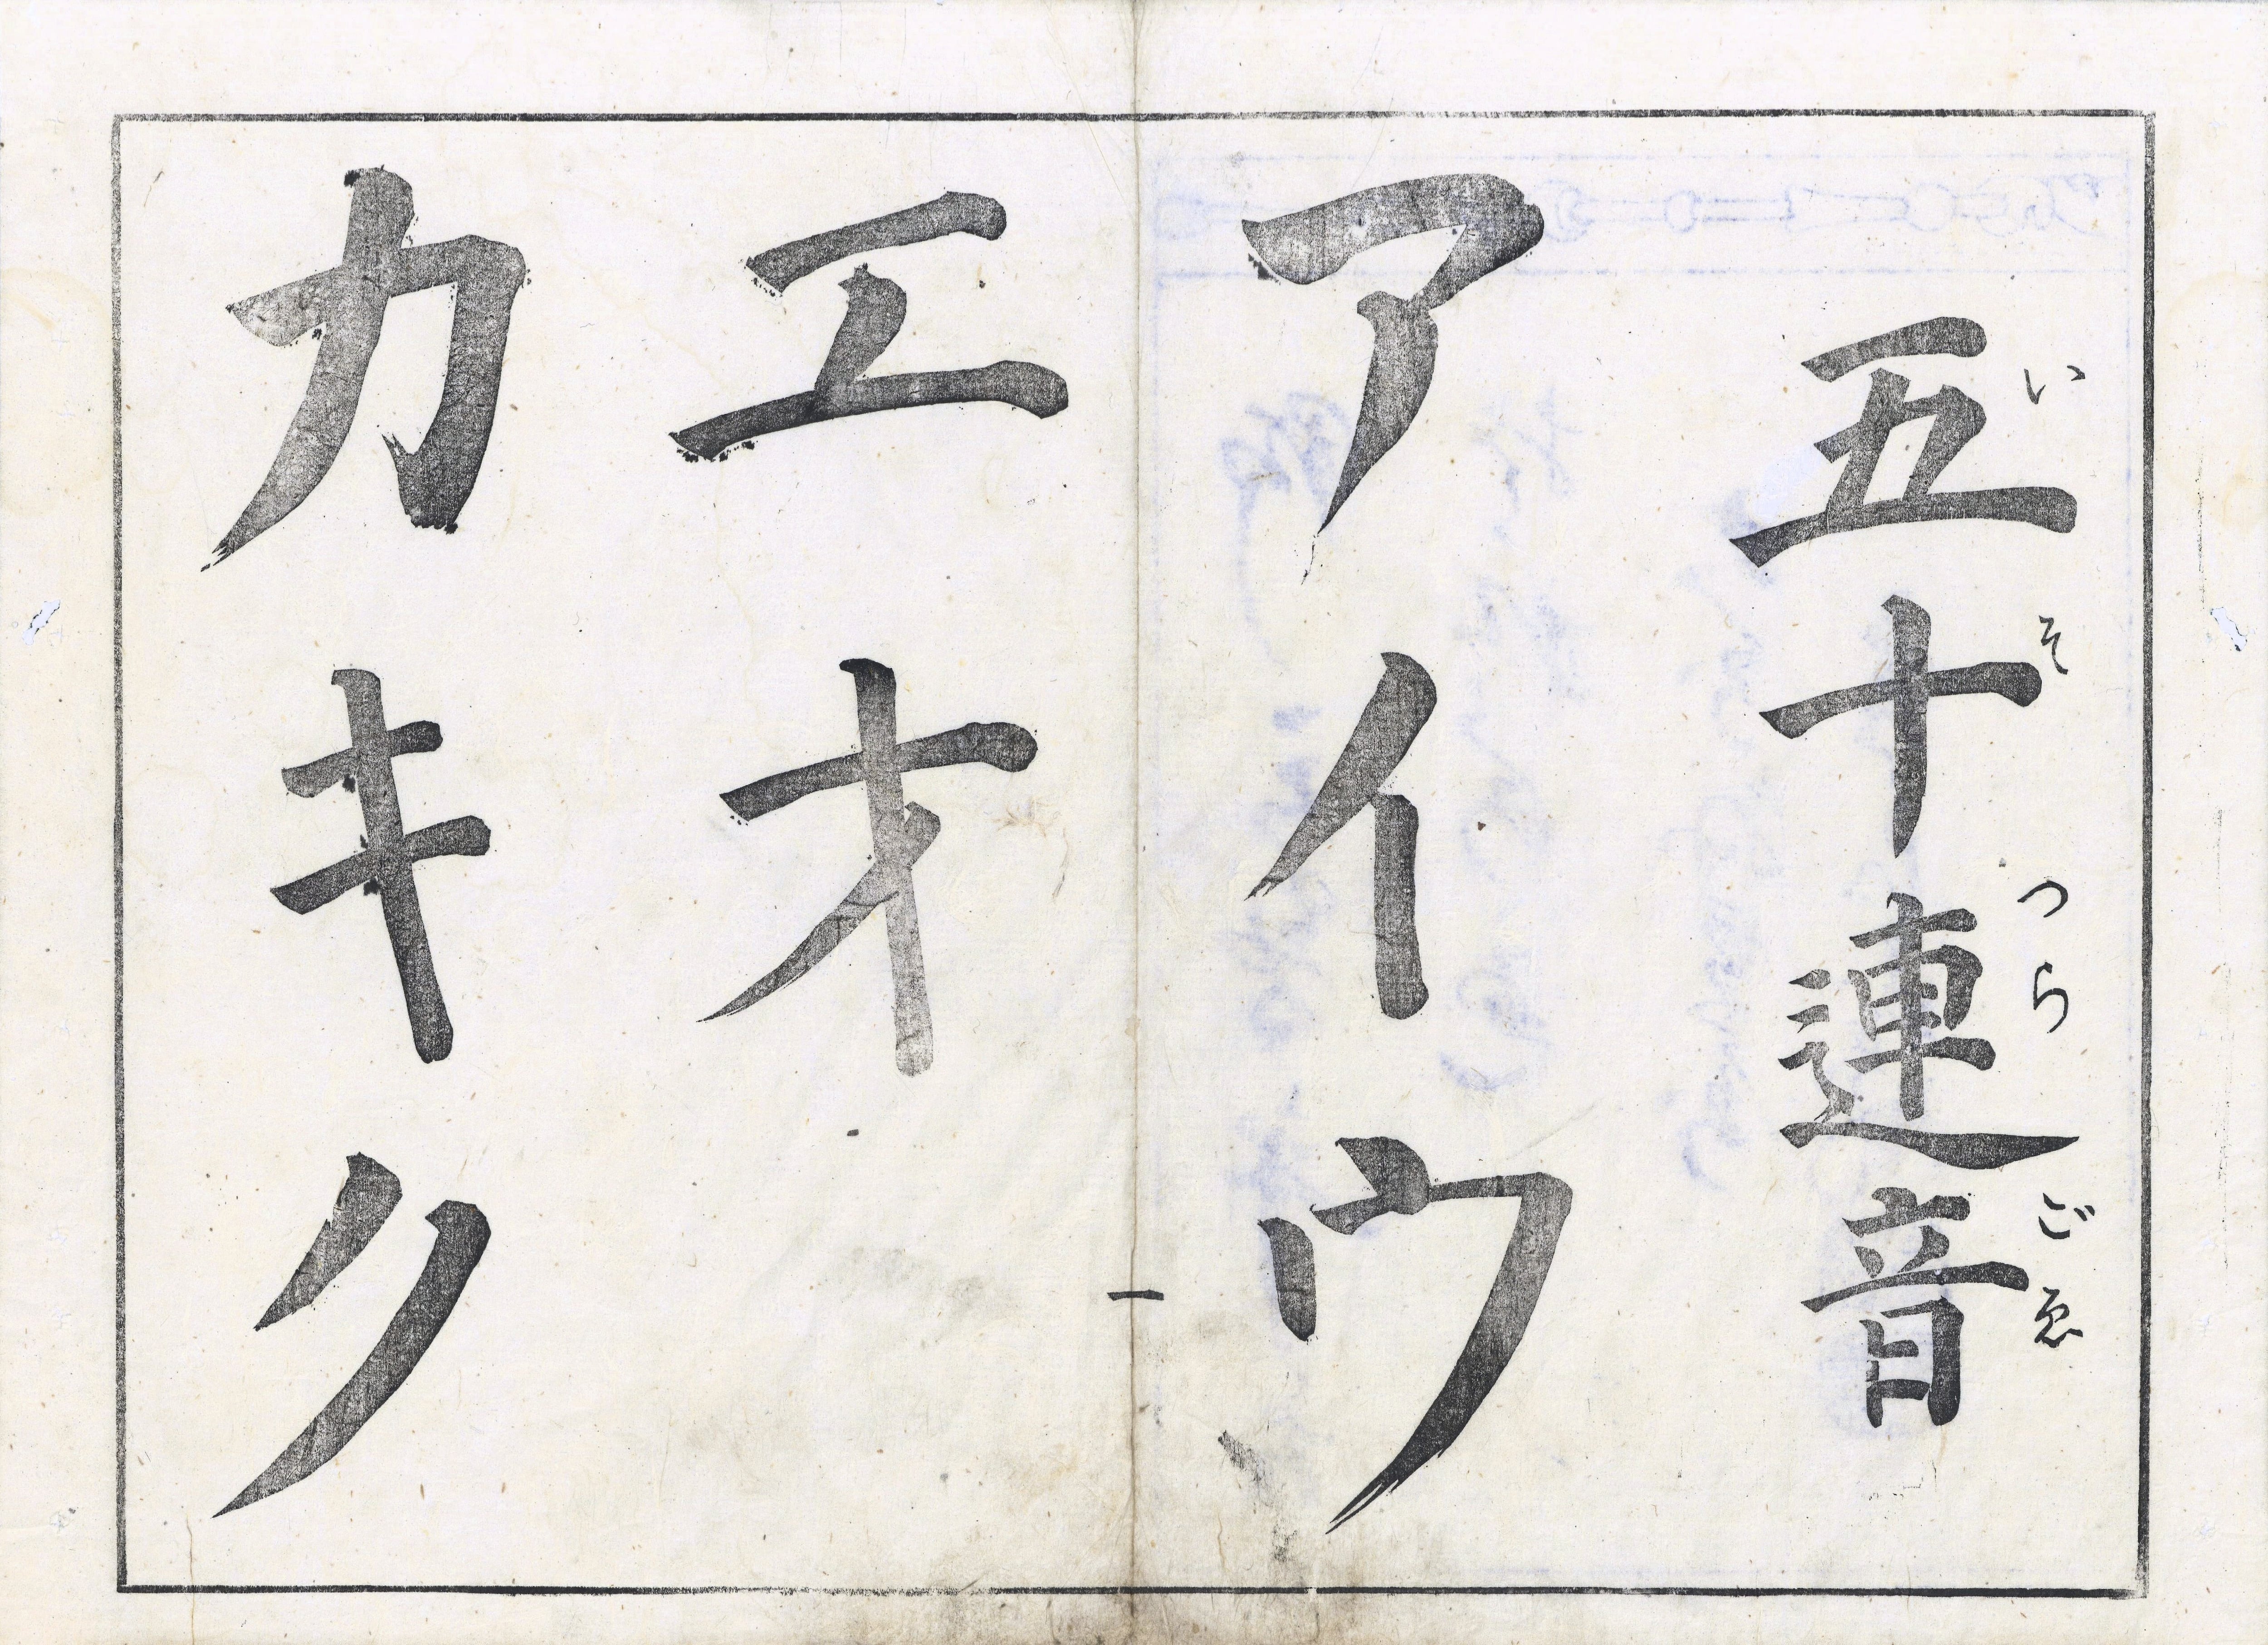 五十連音
いそつらごゑ
アイウ
エオ
カキク
一